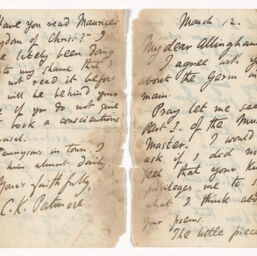 March 2.
My dear Allingham
I agree with you
about the Germ in the
main.
Pray let me see
Part I. of the Music
Master. I would
ask if I did not
feel that your
privileges me to
what I think about
your poems.
The little piece
Have you read Maurice's
Kingdom of Christ? I
have lately been
to my shame that I
not read it before
will be behind your
if you do not give
book a conscientious
perusal.
Tennyson's in town. I
him almost daily
Yours faithfully,
C.K. Patmore.